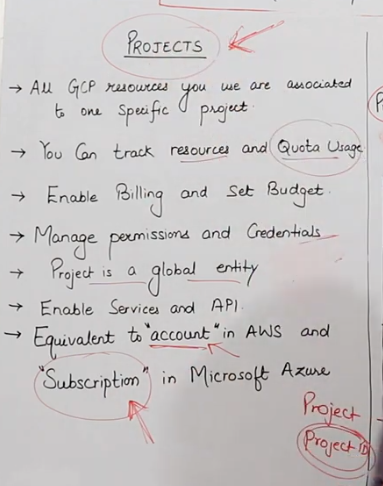 PROJECTS
→ All GCP resources you use are associated
to one specific project.
→ You Can track resources and Quota Usage
→ Enable Billing and Set Budget.
→ Manage permissions and Credentials
→ Project is a global entity
→ Enable Services and API.
→ Equivalent to "account" in AWS and
"Subscription" in Microsoft Azure
Project
Project ID